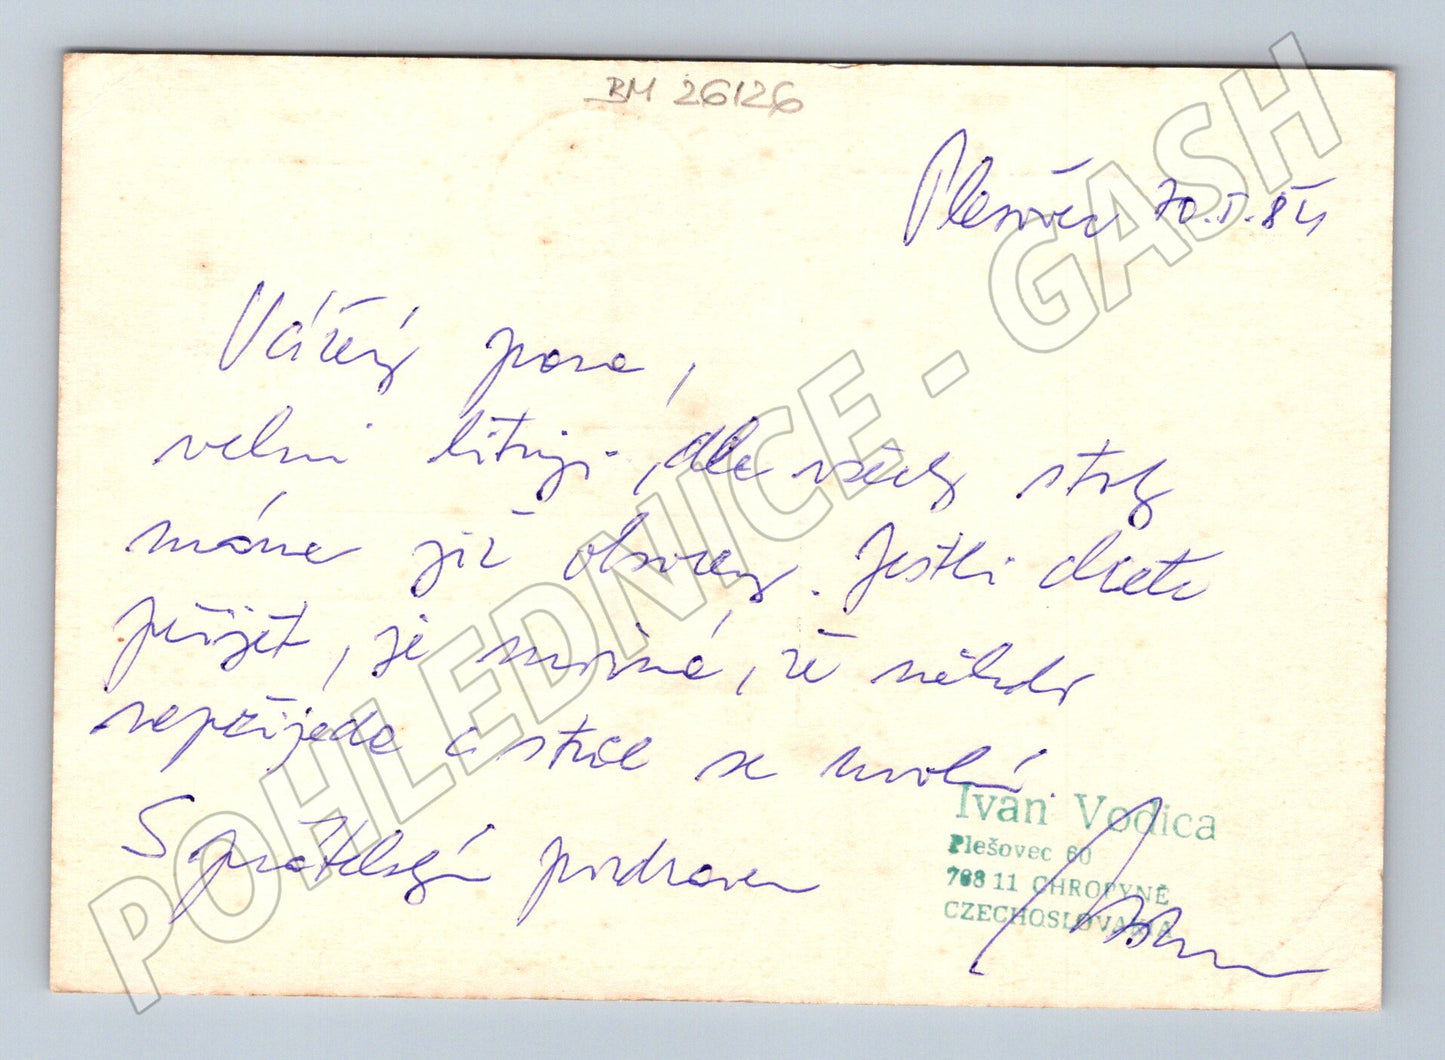 BM 26126
Plešovec 10.I.84
Vážený pane,
velmi lituji, ale všechy stoly
máme již obsazeny. Jestli chcete
přijet, je možné, že někdo
nepřijede a stůl se uvolní.
S přátelským pozdravem
Ivan Vodica
Plešovec 60
768 11 CHROPYNĚ
CZECHOSLOVAKIA
POHLEDNICE - GASH